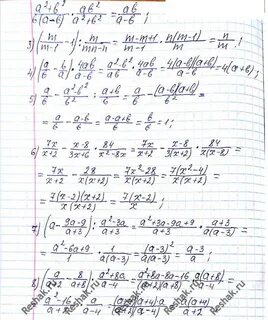 a²+b²/b(a-b) · ab²/a²+b² = ab/a-b ;
3) (m/m-1 - 1) : m/mn-n = m-m+1/m-1 · n(m-1)/m = n/m ;
4) (a/b - b/a) · 4ab/a-b = a²-b²/ab · 4ab/a-b = 4(a-b)(a+b)/a-b = 4(a+b) ;
5) a/b - a²-b²/b² : a+b/b = a/b - (a-b)(a+b)/b² ·
= a/b - a-b/b = a-a+b/b = b/b = 1 ;
6) 7x/x+2 - x-8/3x+6 · 84/x²-8x = 7x/x+2 - x-8/3(x+2) · 84/x(x-8) =
= 7x/x+2 - 28/x(x+2) = 7x²-28/x(x+2) = 7(x²-4)/x(x+2) =
= 7(x-2)(x+2)/x(x+2) = 7(x-2)/x ;
7) (a - 9a-9/a+3) : a²-3a/a+3 = a²+3a-9a+9/a+3 · a+3/a(a-3) =
= a²-6a+9/1 · 1/a(a-3) = (a-3)²/a(a-3) = a-3/a ;
8) (a/a+2 - 8/a+8) · a²+8a/a-4 = a²+8a-8a-16/(a+2)(a+8) · a(a+8)/a-4 =
= a²-16/a+2 · a/a-4 = (a-4)(a+4)·a/(a+2)(a-4) = a(a+4)/a+2
Reshak.ru